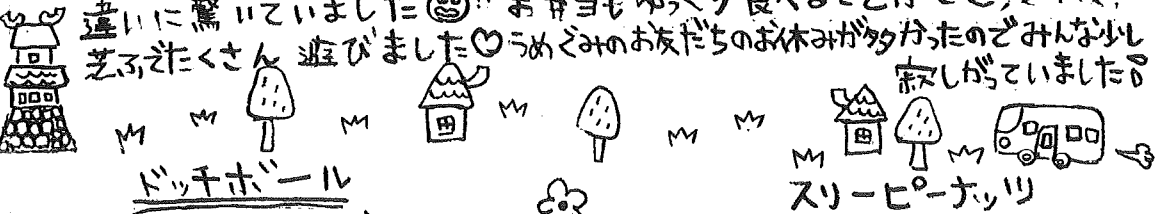 違いに驚いていました お弁当もゆっくり食べることができ
芝ふでたくさん遊びました♡うめぐみのお友だちのお休みが多かったのでみんな少し
寂しがっていました
ドッチボール
スリーピーナッツ